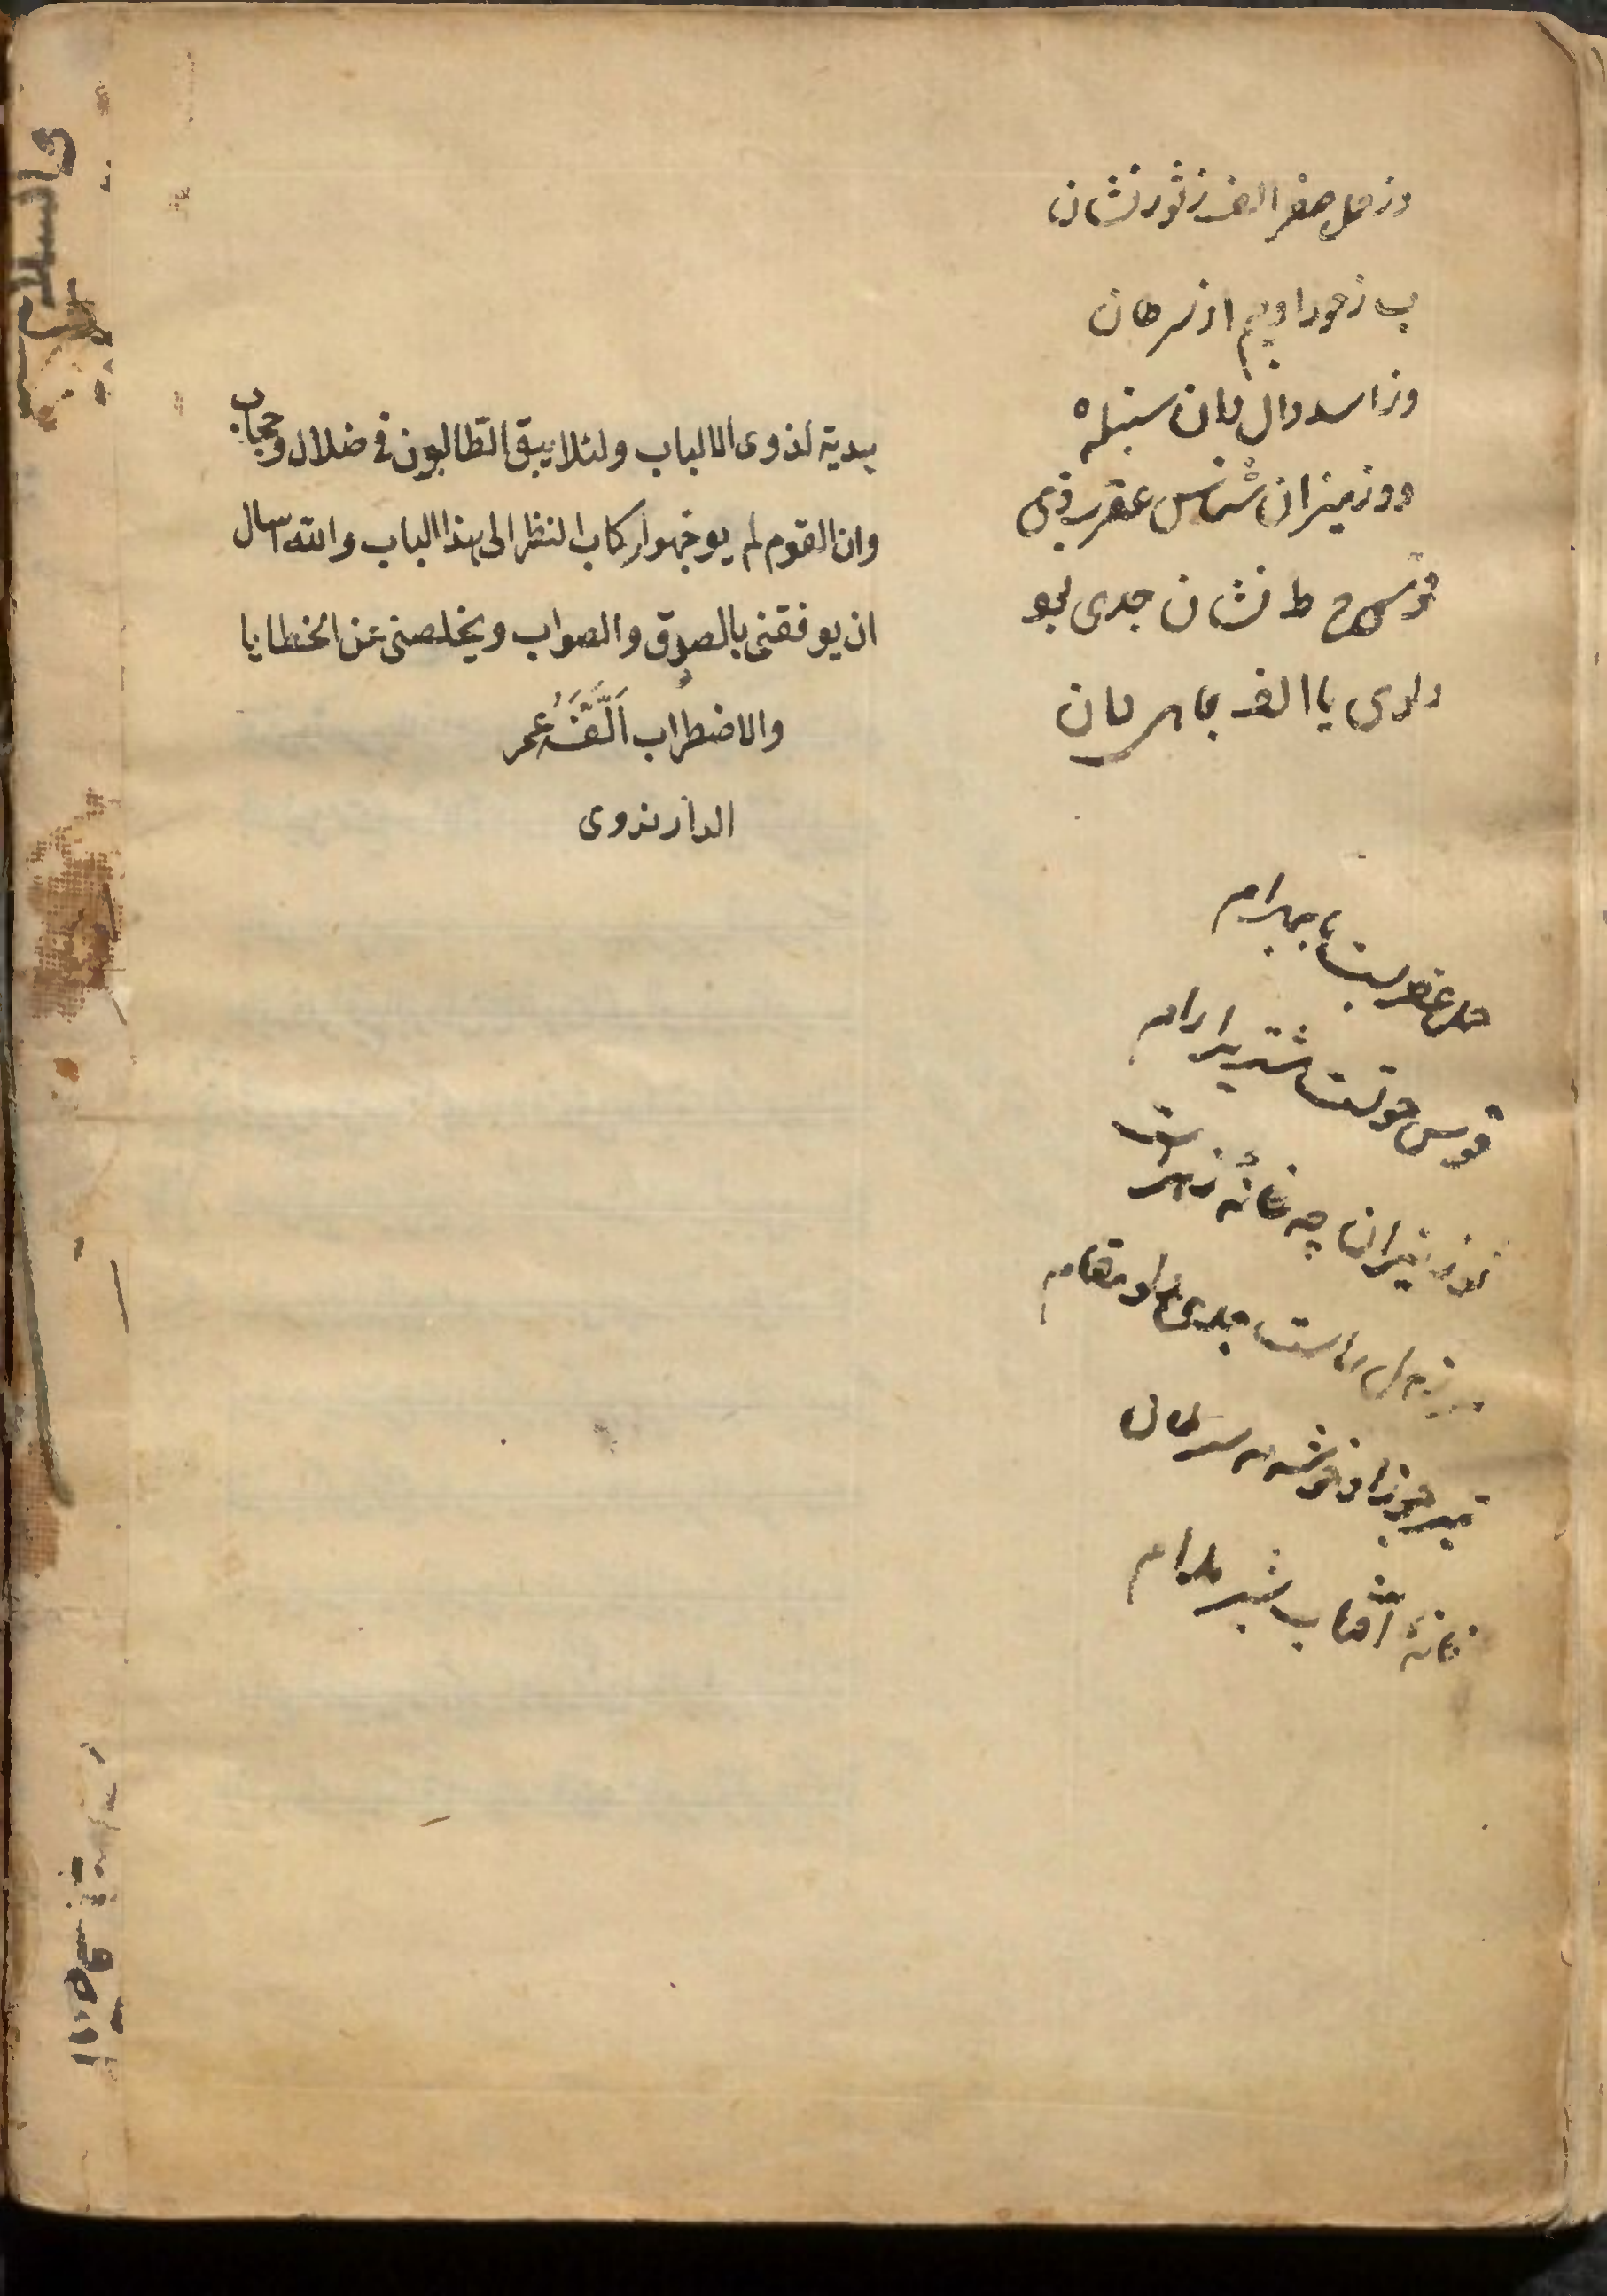 وز حمل صفر الف ز ثور نشان
ب ز جوزا و جیم از سرطان
وز اسد دال دان سنبله ه
وو ز میزان شناس عقرب زی
قوس ح ط نشان جدی بجو
دلوی یا الف بماهی دان
حمل عقربست با بهرام
قوس حوتست مشتریرا رام
ثور میزان چه خانهٔ زهراست
مر زحل راست جدی دلو مقام
تیر جوزا و خوشه مه سرطان
خانهٔ آفتاب شیر مدام
هدية لذوى الالباب ولئلا يبقى الطالبون فى ضلال وحجاب
وان القوم لم يوجهوا ركاب النظر الى هذا الباب والله اسال
ان يوفقنى بالصدق والصواب ويخلصنى عن الخطايا
والاضطراب اَلَّفَهُ عمر
الدارندوى
والسلام